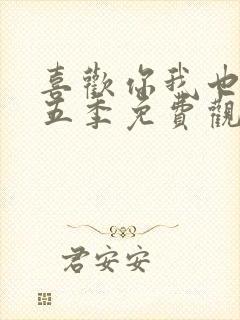 喜歡你我也
五季免費觀
君安安